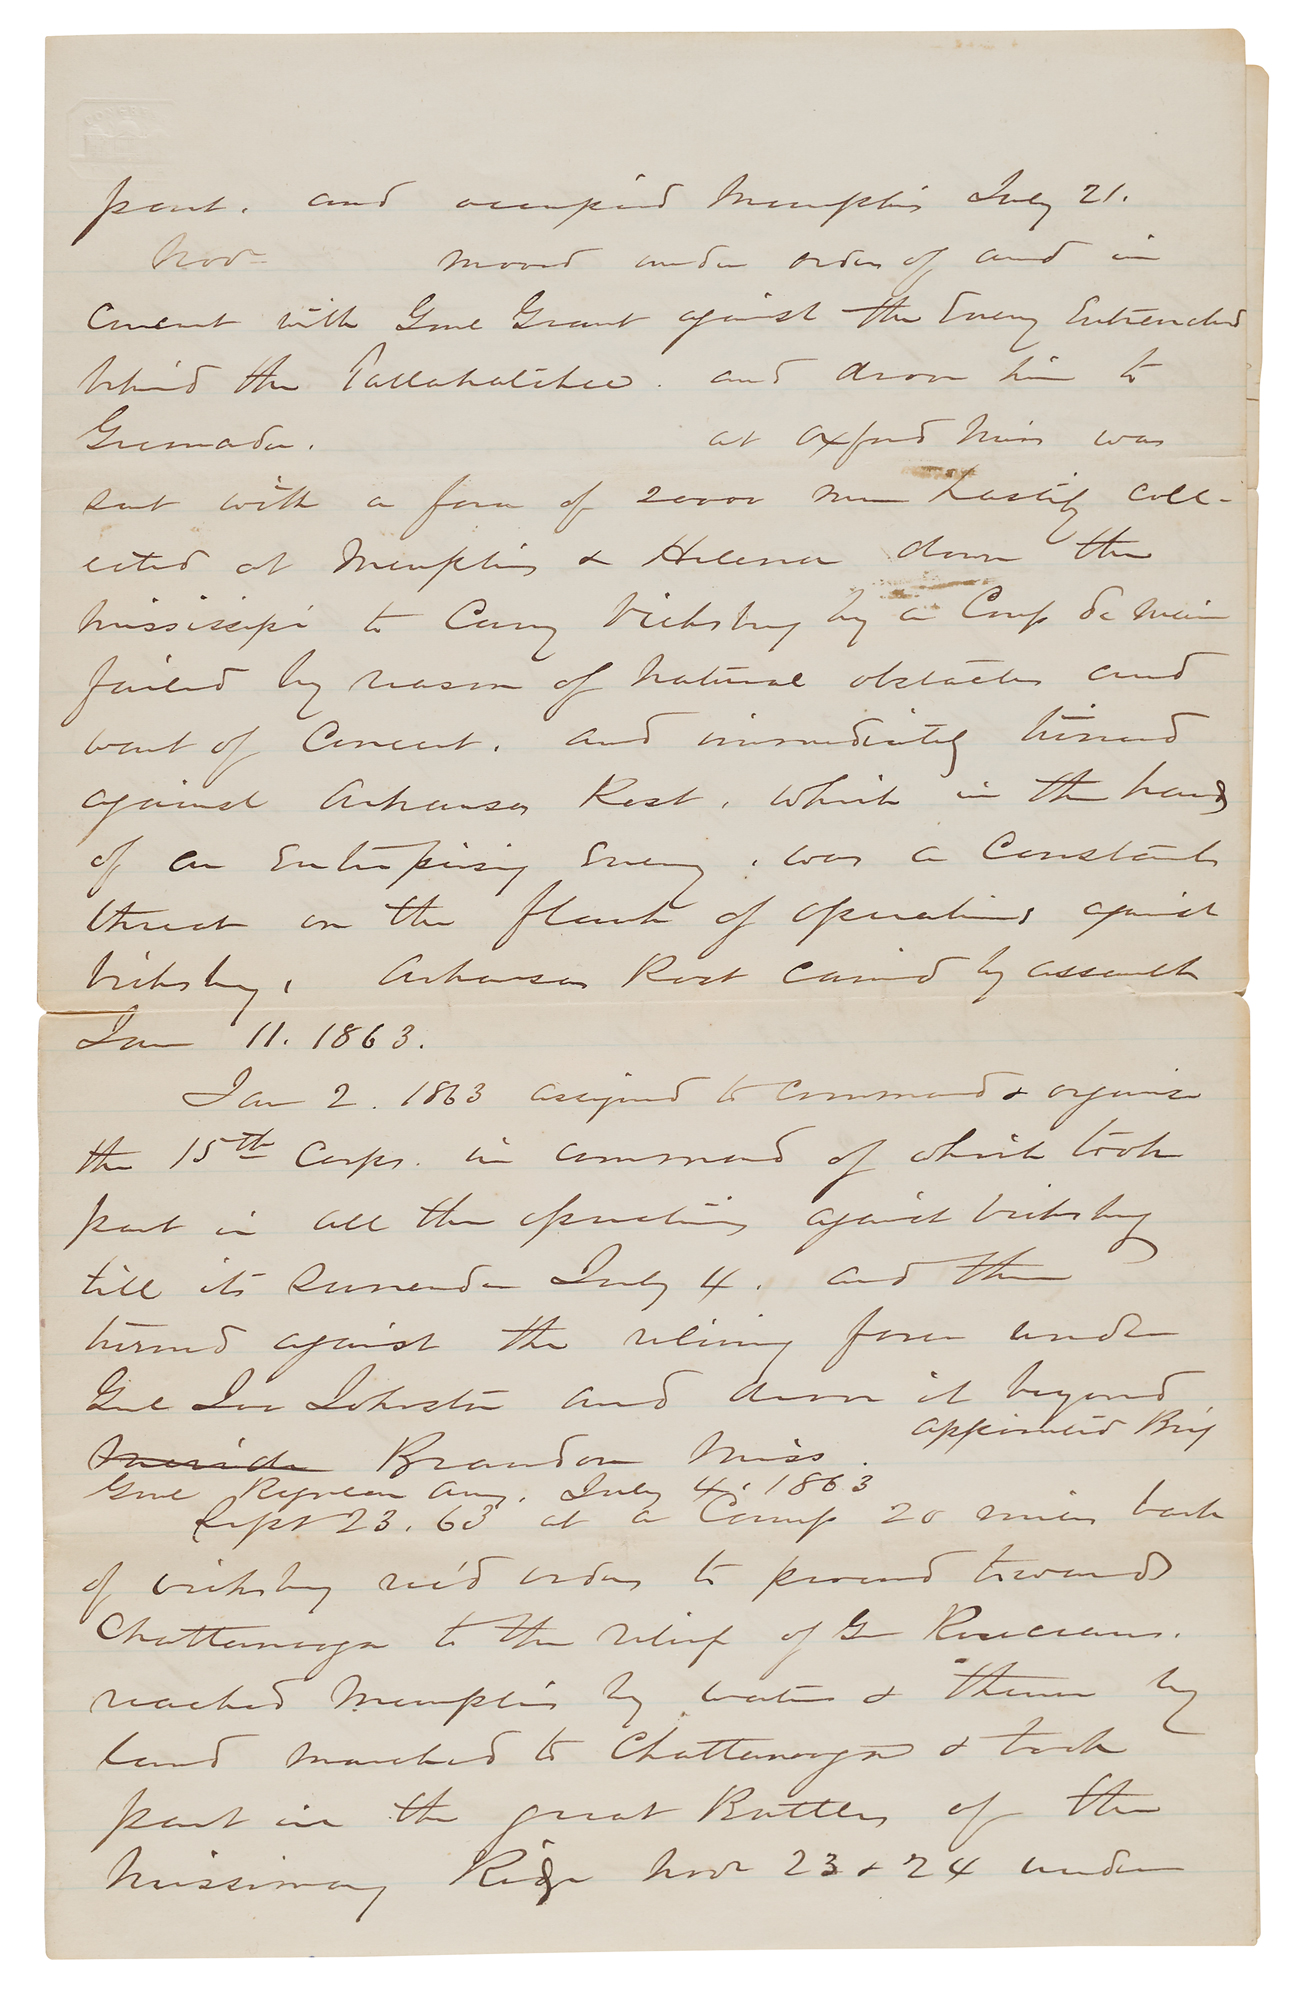 part. and occupied Memphis July 21.
Nov- moved under orders of and in
concert with Genl Grant against the Enemy Entrenched
behind the Tallahatchee. and drove him to
Grenada. at Oxford Miss was
sent with a force of 20000 men hastily coll-
ected at Memphis & Helena down the
Mississipi to Carry Vicksburg by a Coup de Main
failed by reason of natural obstacles and
want of Concert. and immediately turned
against Arkansas Post, which in the hands
of an Enterprising Enemy, was a Constant
threat on the flank of operations against
Vicksburg, Arkansas Post carried by assault
Jan 11. 1863.
Jan 2. 1863 assigned to command & organize
the 15th Corps. in command of which took
part in all the operations against Vicksburg
till its surrender July 4. and then
turned against the relieving force under
Genl Joe Johnston and drove it beyond
Meridian Brandon Miss. appointed Brig
Genl Regular Army. July 4, 1863
Sept 23. 63 at a Camp 20 miles back
of Vicksburg rec'd orders to proceed towards
Chattanooga to the relief of Gen Rosecrans.
reached Memphis by water & thence by
land marched to Chattanooga & took
part in the great Battles of the
Missionary Ridge Nov 23 & 24 under